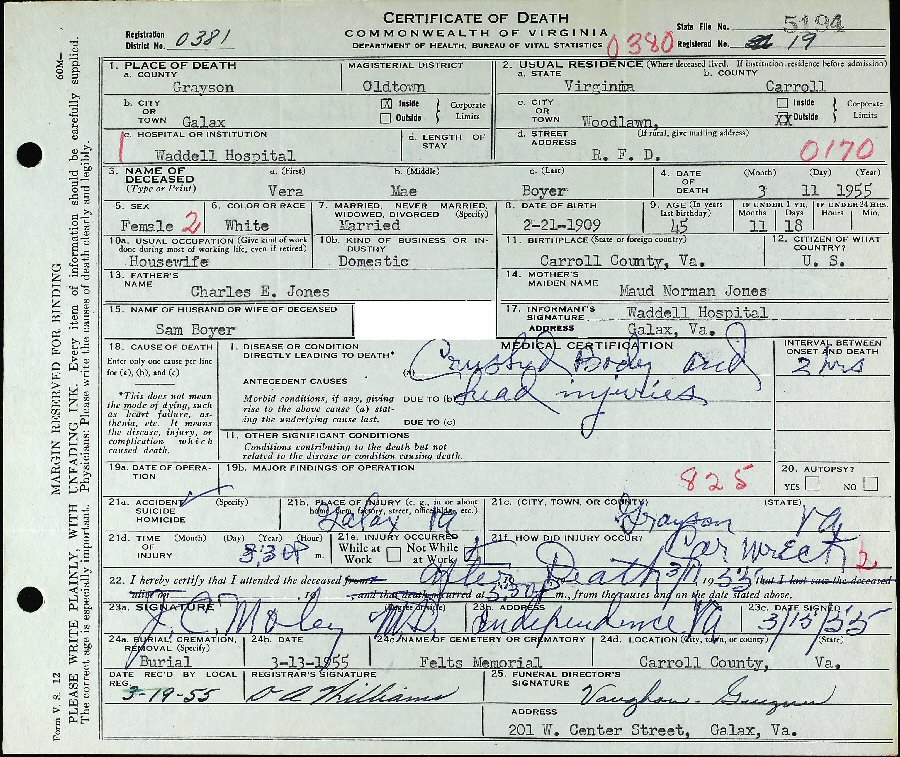 CERTIFICATE OF DEATH
COMMONWEALTH OF VIRGINIA
DEPARTMENT OF HEALTH, BUREAU OF VITAL STATISTICS
Registration District No. 0381
0380
State File No. 5194
Registered No. 19
1. PLACE OF DEATH
a. COUNTY
Grayson
MAGISTERIAL DISTRICT
Oldtown
2. USUAL RESIDENCE (Where deceased lived. If institution: residence before admission)
a. STATE
Virginia
b. COUNTY
Carroll
b. CITY OR TOWN Galax
X Inside
Outside
Corporate Limits
c. CITY OR TOWN Woodlawn,
Inside
XX Outside
Corporate Limits
c. HOSPITAL OR INSTITUTION
Waddell Hospital
d. LENGTH OF STAY
d. STREET ADDRESS
(If rural, give mailing address)
R. F. D.
0170
3. NAME OF DECEASED
(Type or Print)
a. (First)
Vera
b. (Middle)
Mae
c. (Last)
Boyer
4. DATE OF DEATH
(Month) (Day) (Year)
3 11 1955
5. SEX
Female 2
6. COLOR OR RACE
White
7. MARRIED, NEVER MARRIED, WIDOWED, DIVORCED (Specify)
Married
8. DATE OF BIRTH
2-21-1909
9. AGE (In years last birthday)
45
IF UNDER 1 YR.
Months Days
11 18
IF UNDER 24 HRS.
Hours Min.
10a. USUAL OCCUPATION (Give kind of work done during most of working life, even if retired)
Housewife
10b. KIND OF BUSINESS OR INDUSTRY
Domestic
11. BIRTHPLACE (State or foreign country)
Carroll County, Va.
12. CITIZEN OF WHAT COUNTRY?
U. S.
13. FATHER'S NAME
Charles E. Jones
14. MOTHER'S MAIDEN NAME
Maud Norman Jones
15. NAME OF HUSBAND OR WIFE OF DECEASED
Sam Boyer
17. INFORMANT'S SIGNATURE
Waddell Hospital
ADDRESS
Galax, Va.
18. CAUSE OF DEATH
Enter only one cause per line for (a), (b), and (c)
*This does not mean the mode of dying, such as heart failure, asthenia, etc. It means the disease, injury, or complication which caused death.
MEDICAL CERTIFICATION
I. DISEASE OR CONDITION DIRECTLY LEADING TO DEATH*
(a) Crushed Body and head injuries
INTERVAL BETWEEN ONSET AND DEATH
2 hrs
ANTECEDENT CAUSES
Morbid conditions, if any, giving rise to the above cause (a) stating the underlying cause last.
DUE TO (b)
DUE TO (c)
11. OTHER SIGNIFICANT CONDITIONS
Conditions contributing to the death but not related to the disease or condition causing death.
19a. DATE OF OPERATION
19b. MAJOR FINDINGS OF OPERATION
825
20. AUTOPSY?
YES NO
21a. ACCIDENT (Specify)
SUICIDE
HOMICIDE
21b. PLACE OF INJURY (e. g., in or about home, farm, factory, street, office bldg., etc.)
Galax Va
21c. (CITY, TOWN, OR COUNTY) (STATE)
Grayson Va
21d. TIME OF INJURY
(Month) (Day) (Year) (Hour)
3:30P m.
21e. INJURY OCCURRED
While at Work
Not While at Work
21f. HOW DID INJURY OCCUR?
Car wreck 2
22. I hereby certify that I attended the deceased from After Death 3/11 1955 that I last saw the deceased
alive on , 19 , and that death occurred at 5:30P m., from the causes and on the date stated above.
23a. SIGNATURE (Degree or title)
J. C. Moxley MD
23b. ADDRESS
Independence Va
23c. DATE SIGNED
3/15/55
24a. BURIAL, CREMATION, REMOVAL (Specify)
Burial
24b. DATE
3-13-1955
24c. NAME OF CEMETERY OR CREMATORY
Felts Memorial
24d. LOCATION (City, town, or county) (State)
Carroll County, Va.
DATE REC'D BY LOCAL REG.
3-19-55
REGISTRAR'S SIGNATURE
D A Williams
25. FUNERAL DIRECTOR'S SIGNATURE
Vaughan-Guynn
ADDRESS
201 W. Center Street, Galax, Va.
Form V. S. 12
60M—
MARGIN RESERVED FOR BINDING
PLEASE WRITE PLAINLY, WITH UNFADING INK. Every item of information should be carefully supplied.
The correct age is especially important. Physicians: Please write the causes of death clearly and legibly.